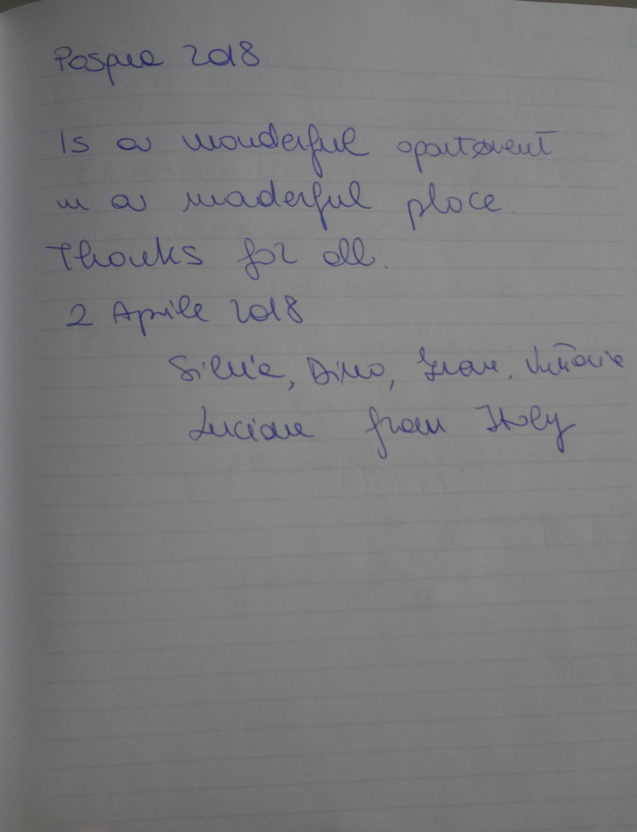 Pasqua 2018
Is a wonderful apartament
in a wonderful place.
Thanks for all.
2 Aprile 2018
Silvia, Dino, Ivan, Vittoria
Luciana from Italy